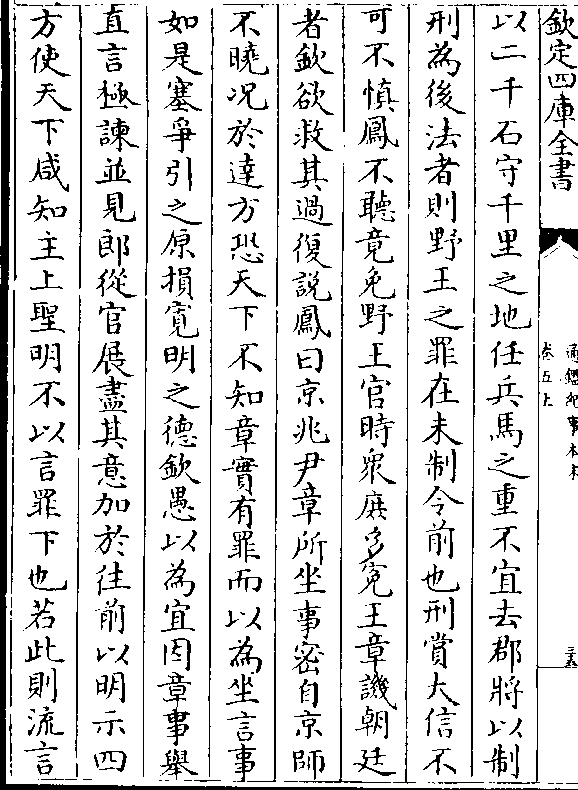 欽定四庫全書
通鑑紀事本末
卷五上
三五
以二千石守千里之地任兵馬之重不宜去郡將以制
刑為後法者則野王之罪在未制令前也刑賞大信不
可不慎鳳不聽竟免野王官時衆庶多寃王章譏朝廷
者欽欲救其過復説鳳曰京兆尹章所坐事密自京師
不曉况於逺方恐天下不知章實有罪而以為坐言事
如是塞爭引之原損寛明之德欽愚以為宜因章事舉
直言極諫並見郎從官展盡其意加於往前以明示四
方使天下咸知主上聖明不以言罪下也若此則流言